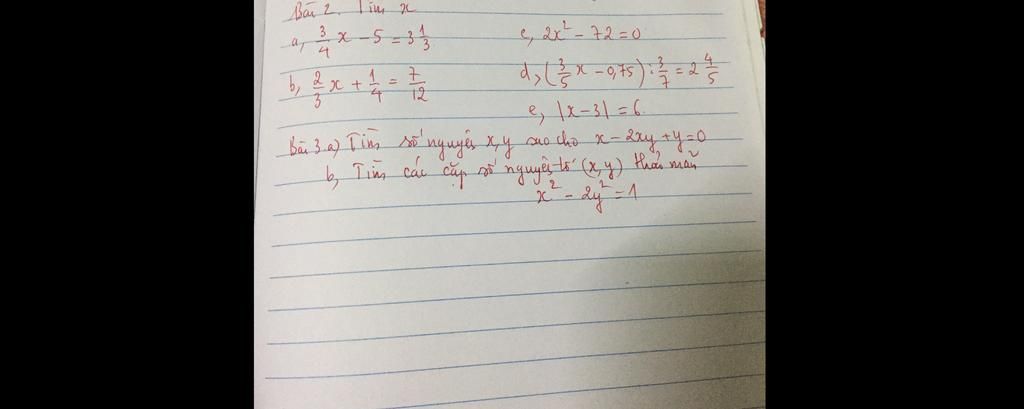 Bài 2. Tìm x
a, 3/4 x - 5 = 3 1/3
c, 2x² - 72 = 0
b, 2/3 x + 1/4 = 7/12
d, (3/5 x - 0,75) : 3/7 = 2 4/5
e, |x - 3| = 6.
Bài 3. a) Tìm số nguyên x, y sao cho x - 2xy + y = 0
b, Tìm các cặp số nguyên tố (x, y) thỏa mãn
x² - 2y² = 1